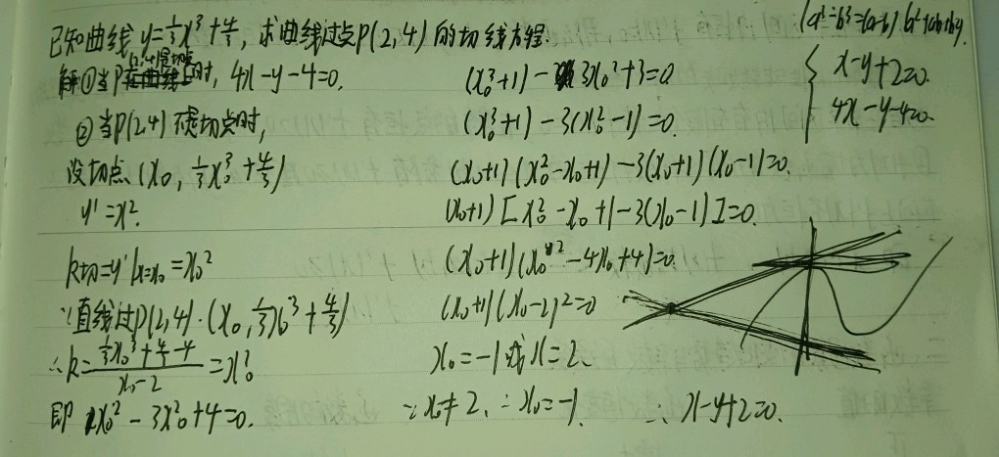 已知曲线 y=⅓x³+4/3, 求曲线过点P(2,4)的切线方程.
解①当P(2,4)是切点时, 4x-y-4=0.
②当P(2,4)不是切点时,
设切点(x₀, ⅓x₀³+4/3)
y'=x².
k切=y'|x=x₀=x₀²
∵直线过P(2,4)·(x₀, ⅓x₀³+4/3)
∴k=(⅓x₀³+4/3-4)/(x₀-2)=x₀²
即 x₀²-3x₀²+4=0.
(x₀³+1)-3x₀²+3=0
(x₀³+1)-3(x₀²-1)=0.
(x₀+1)(x₀²-x₀+1)-3(x₀+1)(x₀-1)=0.
(x₀+1)[x₀²-x₀+1-3(x₀-1)]=0.
(x₀+1)(x₀²-4x₀+4)=0.
(x₀+1)(x₀-2)²=0
x₀=-1或x=2.
∵x₀≠2, ∴x₀=-1. ∴x-y+2=0.
{x-y+2=0.
4x-y-4=0.